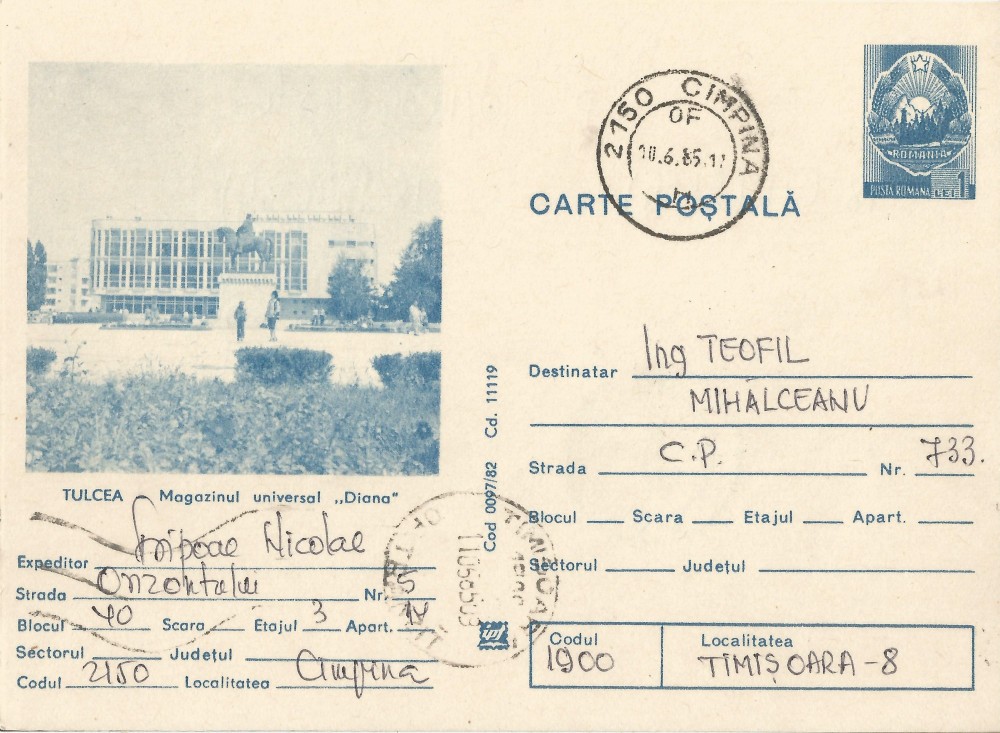 2150 CIMPINA
OF
10.6.85.1
CARTE POȘTALĂ
ROMANIA
POSTA ROMANA LEI 1
TULCEA Magazinul universal „Diana"
Expeditor Nicolae
Strada Nr. 5
Blocul 40 Scara Etajul 3 Apart. 14
Sectorul Județul
Codul 2150 Localitatea Cimpina
Cod 0097/82 Cd. 11119
Destinatar Ing TEOFIL
MIHĂLCEANU
Strada C.P. Nr. 733.
Blocul Scara Etajul Apart.
Sectorul Județul
Codul 1900
Localitatea TIMIȘOARA-8